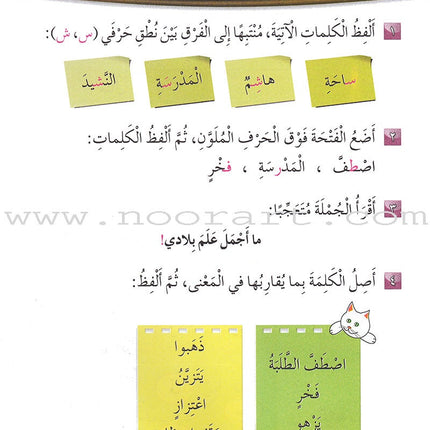 ١ أَلْفِظُ الْكَلِماتِ الْآتِيَةَ، مُنْتَبِهًا إِلى الْفَرْقِ بَيْنَ نُطْقِ حَرْفَي (س، ش):
ساحَةِ هاشِمٌ الْمَدْرَسَةِ النَّشيدَ
٢ أَضَعُ الْفَتْحَةَ فَوْقَ الْحَرْفِ الْمُلَوَّنِ، ثُمَّ أَلْفِظُ الْكَلِماتِ:
اصْطفَّ ، الْمَدْرسَةِ ، فخْرٍ
٣ أَقْرَأُ الْجُمْلَةَ مُتَعَجِّبًا:
www.noorart.com
ما أَجْمَلَ عَلَمَ بِلادي!
٤ أَصِلُ الْكَلِمَةَ بِما يُقارِبُها في الْمَعْنى، ثُمَّ أَلْفِظُ:
اصْطَفَّ الطَّلَبَةُ
فَخْرٍ
يَزْهو
ذَهَبوا
يَتَزَيَّنُ
اعْتِزازٍ